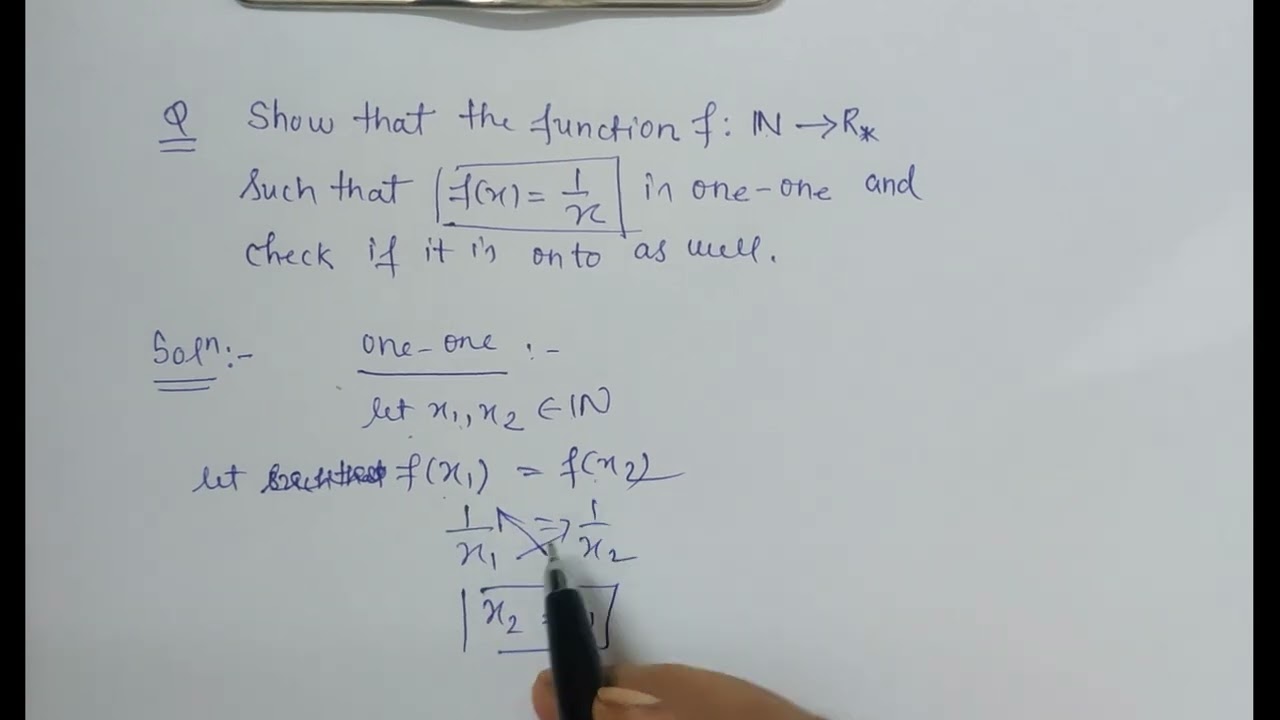 Q Show that the function f: IN → R*
Such that f(x) = 1/x in one-one and
check if it is onto as well.
Solⁿ:- one-one :-
let x₁, x₂ ∈ IN
let f(x₁) = f(x₂)
1/x₁ = 1/x₂
x₂ =